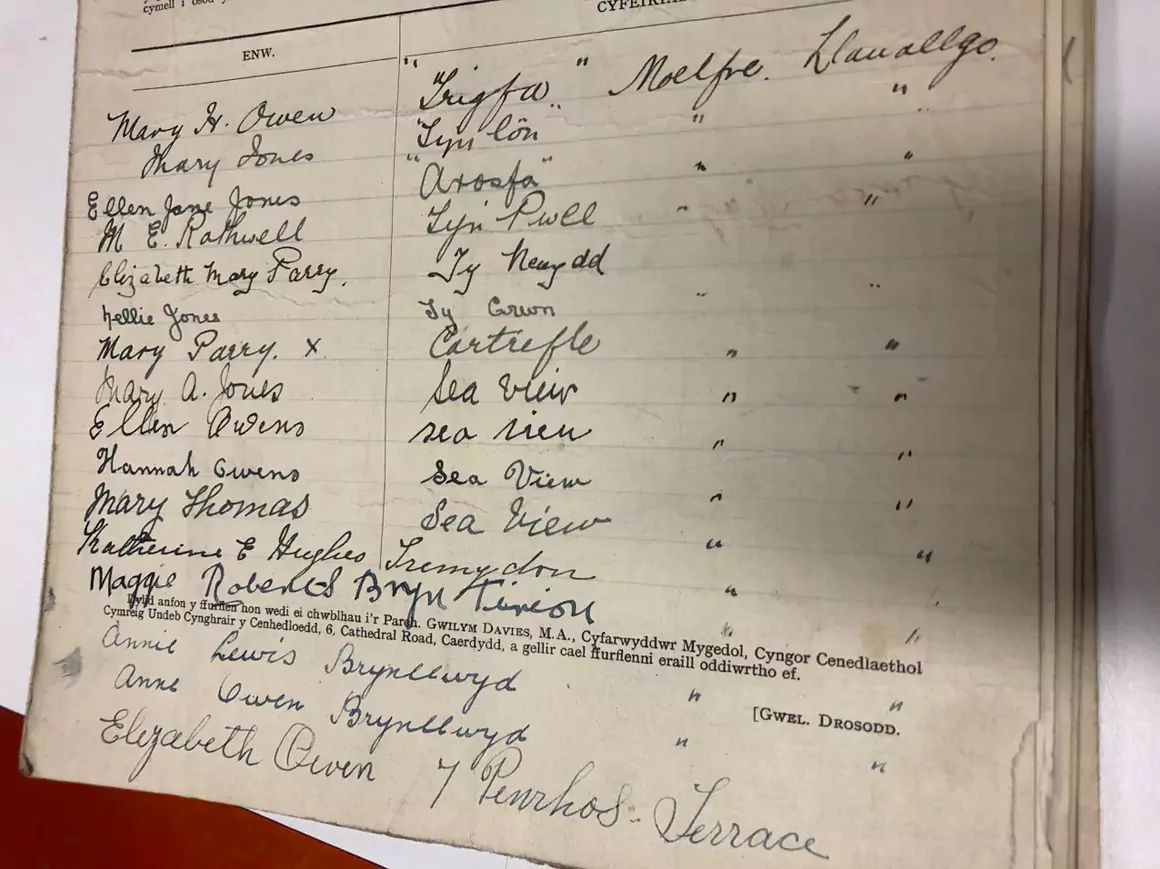 cymell i
CYFEIRIAD
ENW.
Mary H. Owen " "Trigfa" " Moelfre. Llanallgo.
Mary Jones Tyn lôn " "
Ellen Jane Jones "Arosfa" " "
M E. Rothwell Tyn Pwll " "
Elizabeth Mary Parry. Ty Newydd
Nellie Jones Ty Crwn " "
Mary Parry. x Cartrefle " "
Mary A. Jones Sea View " "
Ellen Owens sea view " "
Hannah Owens Sea View " "
Mary Thomas Sea View " "
Katherine E Hughes Tremydon " "
Maggie Roberts Bryn Tirion " "
Dylid anfon y ffurflen hon wedi ei chwblhau i'r Parch. GWILYM DAVIES, M.A., Cyfarwyddwr Mygedol, Cyngor Cenedlaethol
Cymreig Undeb Cynghrair y Cenhedloedd, 6, Cathedral Road, Caerdydd, a gellir cael ffurflenni eraill oddiwrtho ef.
Annie Lewis Brynllwyd " "
[GWEL. DROSODD.
Anne Owen Brynllwyd " "
Elizabeth Owen 7 Penrhos. Terrace